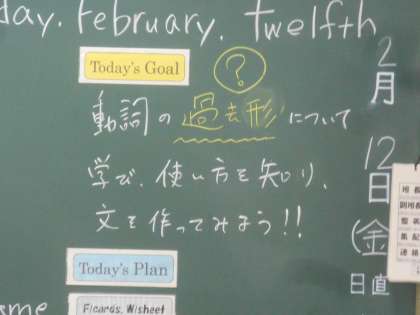 day. February. twelfth
Today's Goal
?
動詞の過去形について
学び、使い方を知り、
文を作ってみよう!!
2月12日(金)
日直
Today's Plan
Flcards, W.sheet